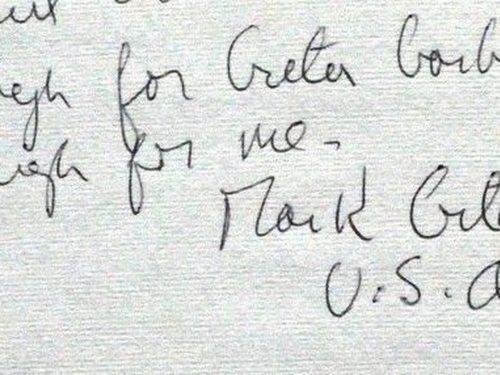 ugh for Greta Garb
ugh for me.
Mark
U.S.